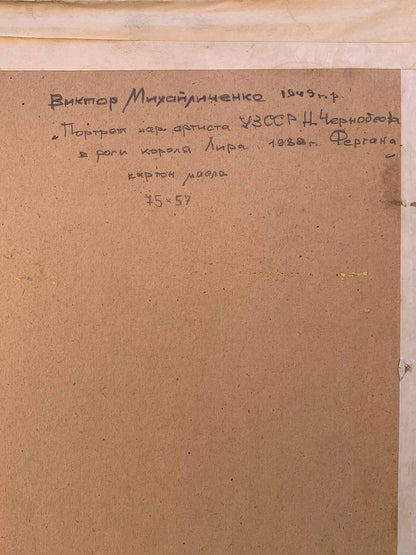 Виктор Михайличенко 1949 г.р.
„Портрет нар. артиста УЗССР Н. Чернобаева
в роли короля Лира 1988 г. Фергана"
картон масло
75×57